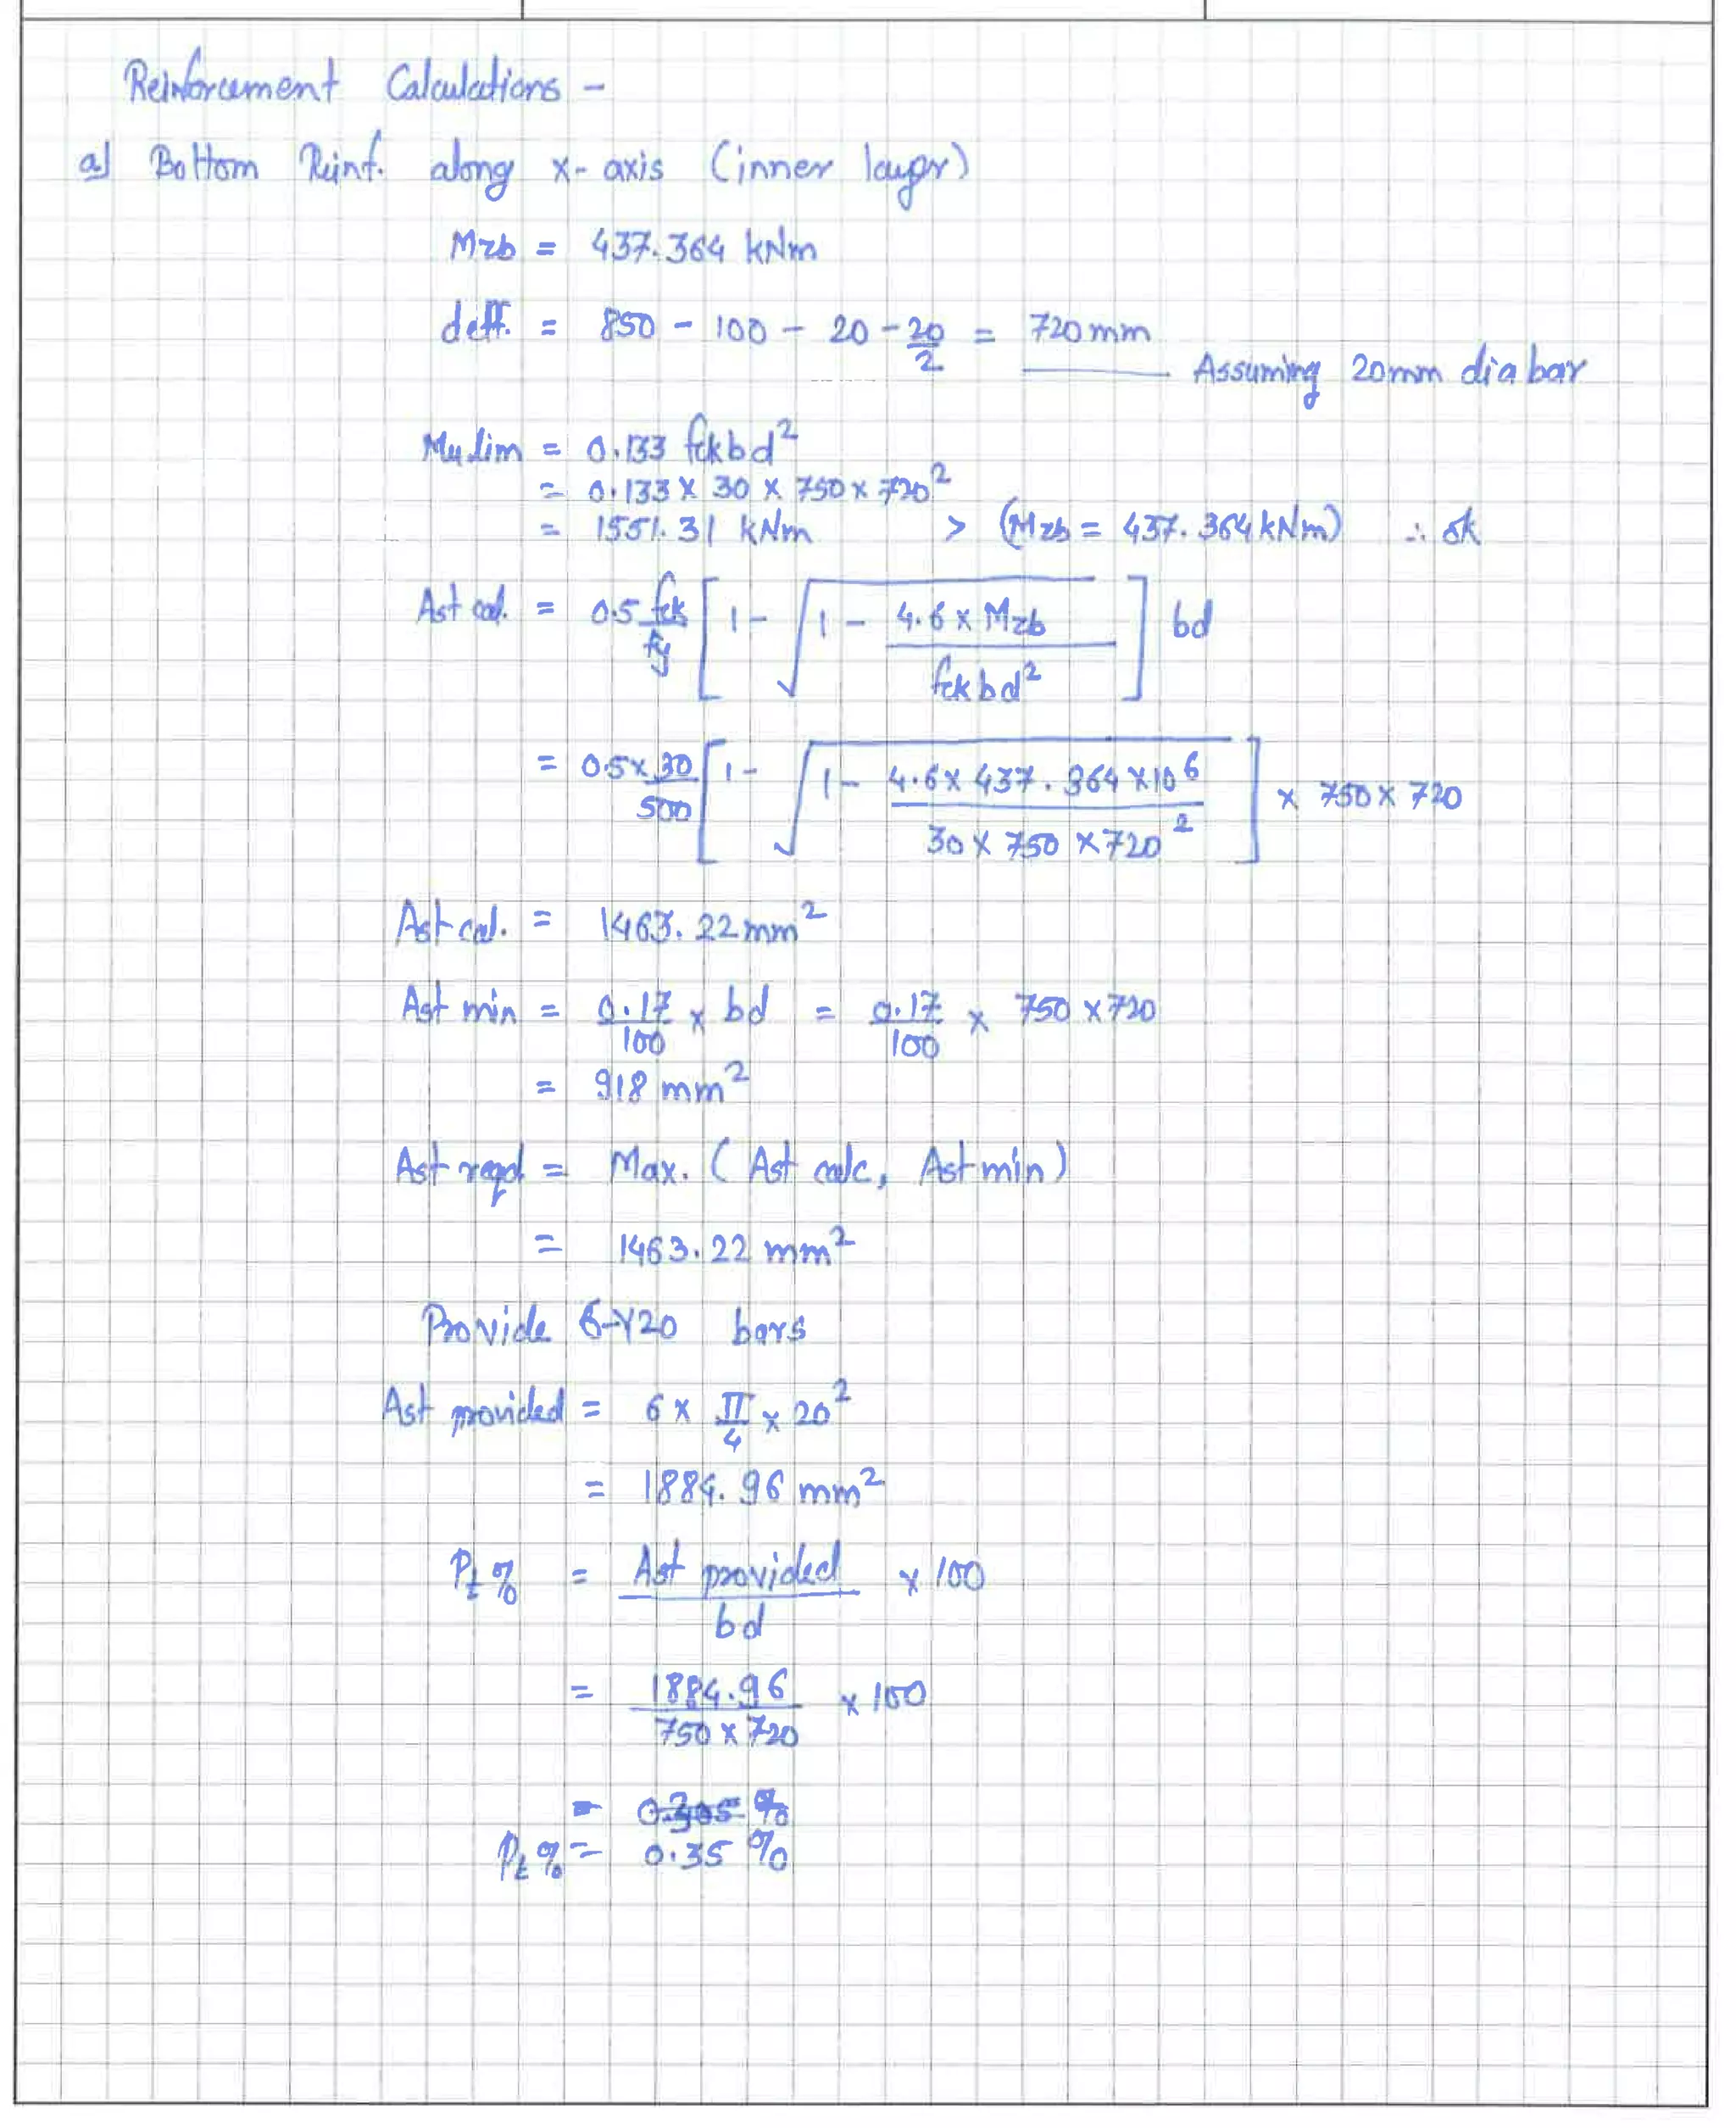 Reinforcement Calculations -
a) Bottom Reinf. along x-axis (inner layer)
Mzb = 437.364 kNm
deff. = 850 - 100 - 20 - 20/2 = 720 mm
Assuming 20mm dia bar
Mu lim = 0.133 fck bd²
= 0.133 x 30 x 750 x 720²
= 1551.31 kNm > (Mzb = 437.364 kNm) ∴ ok
Ast cal. = 0.5 fck/fy [1 - √(1 - (4.6 x Mzb)/(fck bd²))] bd
= 0.5 x 30/500 [1 - √(1 - (4.6 x 437.364 x 10⁶)/(30 x 750 x 720²))] x 750 x 720
Ast cal. = 1463.22 mm²
Ast min = 0.17/100 x bd = 0.17/100 x 750 x 720
= 918 mm²
Ast reqd. = Max. (Ast calc, Ast min)
= 1463.22 mm²
Provide 6-Y20 bars
Ast provided = 6 x π/4 x 20²
= 1884.96 mm²
Pt % = Ast provided/bd x 100
= 1884.96/(750 x 720) x 100
Pt % = 0.35 %